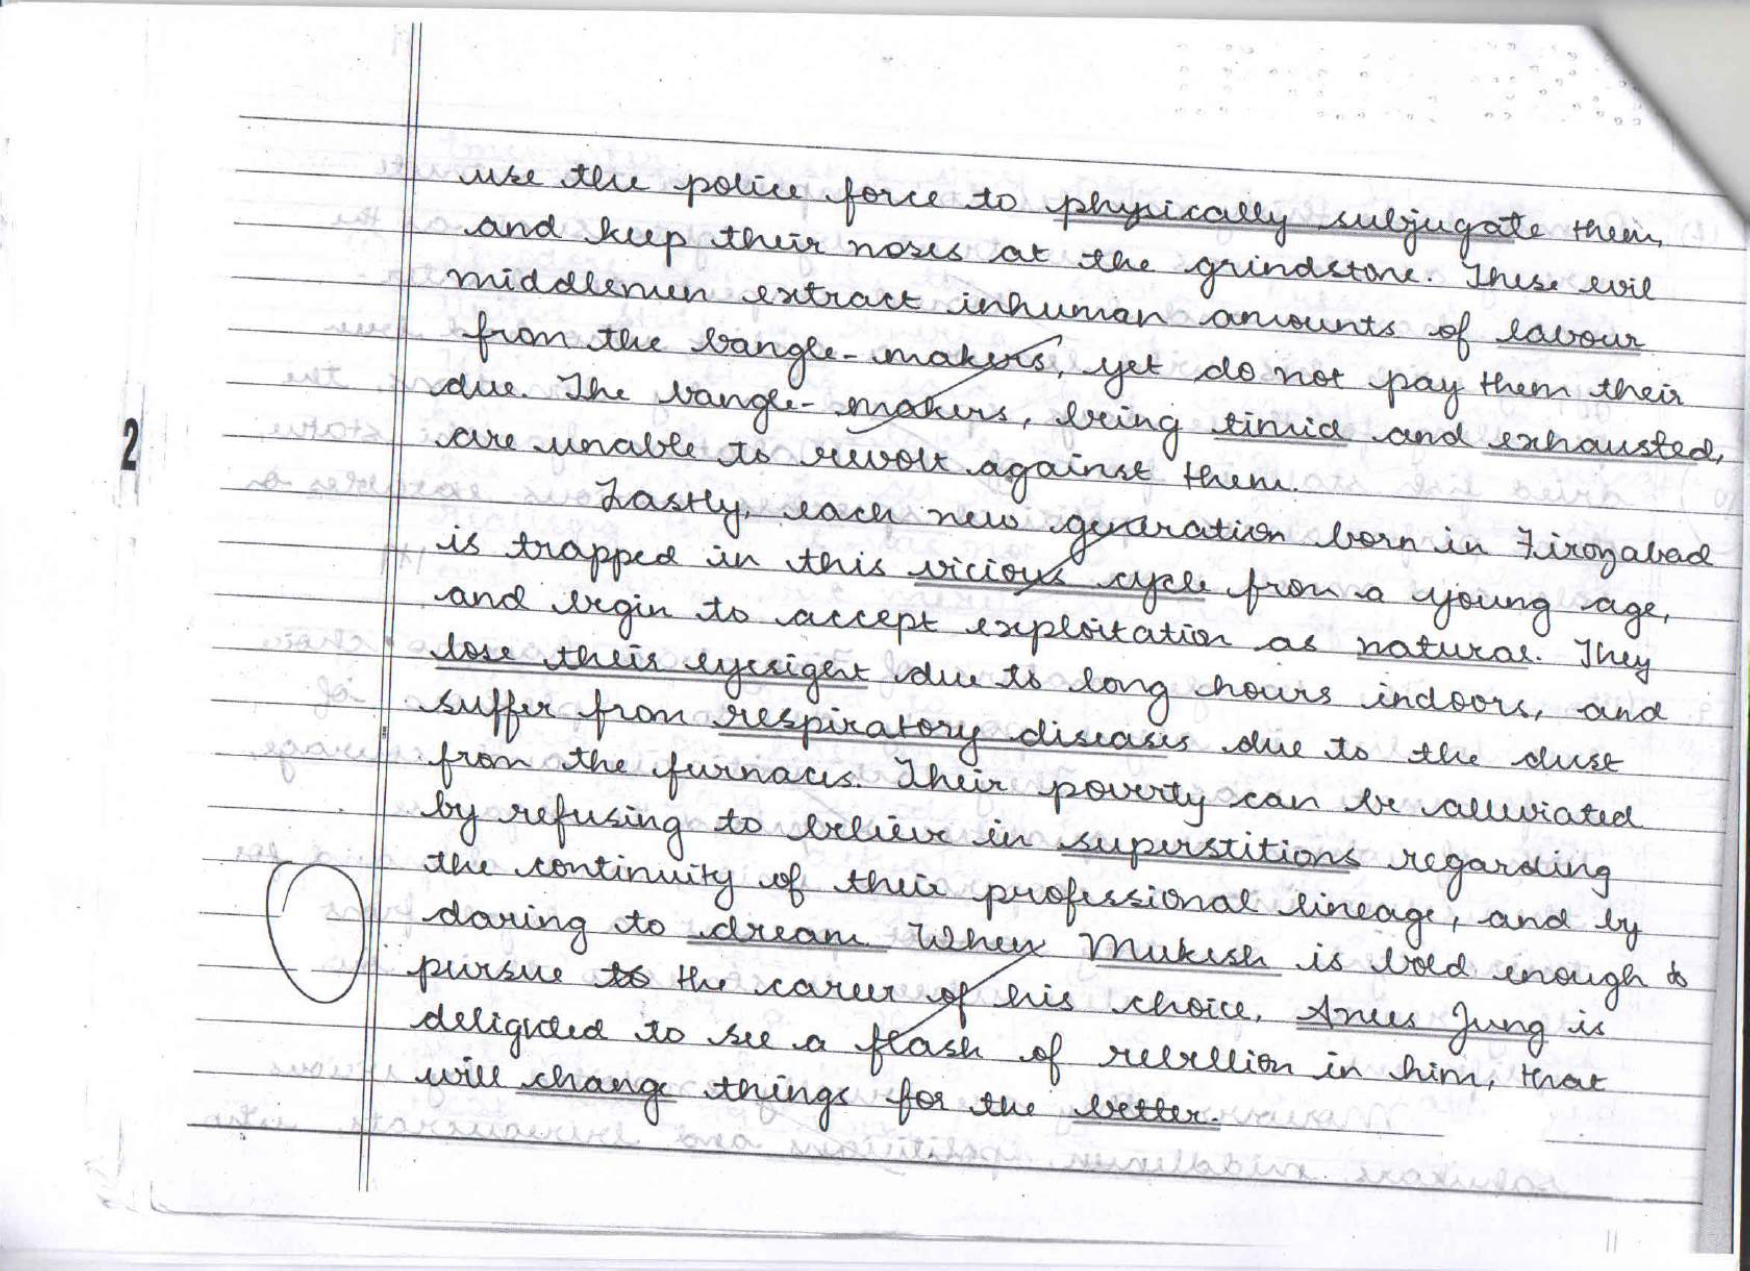 use the police force to physically subjugate them,
and keep their noses at the grindstone. These evil
middlemen extract inhuman amounts of labour
from the bangle-makers, yet do not pay them their
due. The bangle-makers, being timid and exhausted,
are unable to revolt against them.
Lastly, each new generation born in Firozabad
is trapped in this vicious cycle from a young age,
and begin to accept exploitation as natural. They
lose their eyesight due to long hours indoors, and
suffer from respiratory diseases due to the dust
from the furnaces. Their poverty can be alleviated
by refusing to believe in superstitions regarding
the continuity of their professional lineage, and by
daring to dream. When Mukesh is bold enough to
pursue the career of his choice, Anees Jung is
delighted to see a flash of rebellion in him, that
will change things for the better.
2